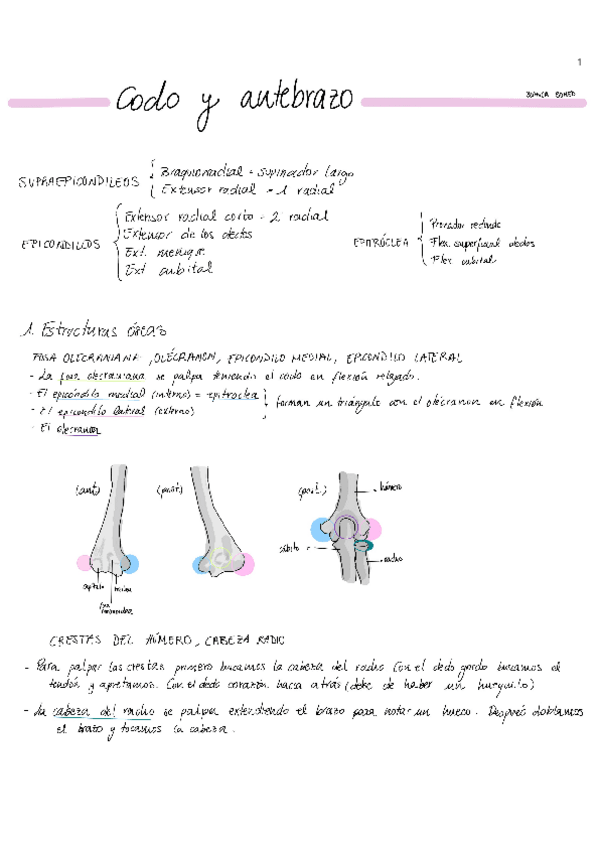 1
Codo y antebrazo
SUPRAEPICONDILEOS
Braquioradial = supinador largo
Extensor radial = 1 radial
EPICONDILEOS
Extensor radial corto = 2 radial
Extensor de los dedos
Ext. meñique
Ext cubital
EPITRÓCLEA
Pronador redondo
Flex. superficial dedos
Flex cubital
1. Estructuras óseas
FOSA OLECRANIANA, OLÉCRANON, EPICONDILO MEDIAL, EPICONDILO LATERAL
- La fosa olecraniana se palpa teniendo el codo en flexión relajado.
- El epicóndilo medial (interno) = epitroclea
- El epicondilo lateral (externo)
forman un triángulo con el olécranon en flexión
- El olecranon
(ant)
(post)
(post.)
húmero
cúbito
radio
capítulo
troclea
fosa
CRESTAS DEL HÚMERO, CABEZA RADIO
- Para palpar las crestas primero buscamos la cabeza del radio. Con el dedo gordo buscamos el
tendón y apretamos. Con el dedo corazón hacia atrás (debe de haber un huequito)
- La cabeza del radio se palpa extendiendo el brazo para notar un hueco. Después doblamos
el brazo y tocamos la cabeza.